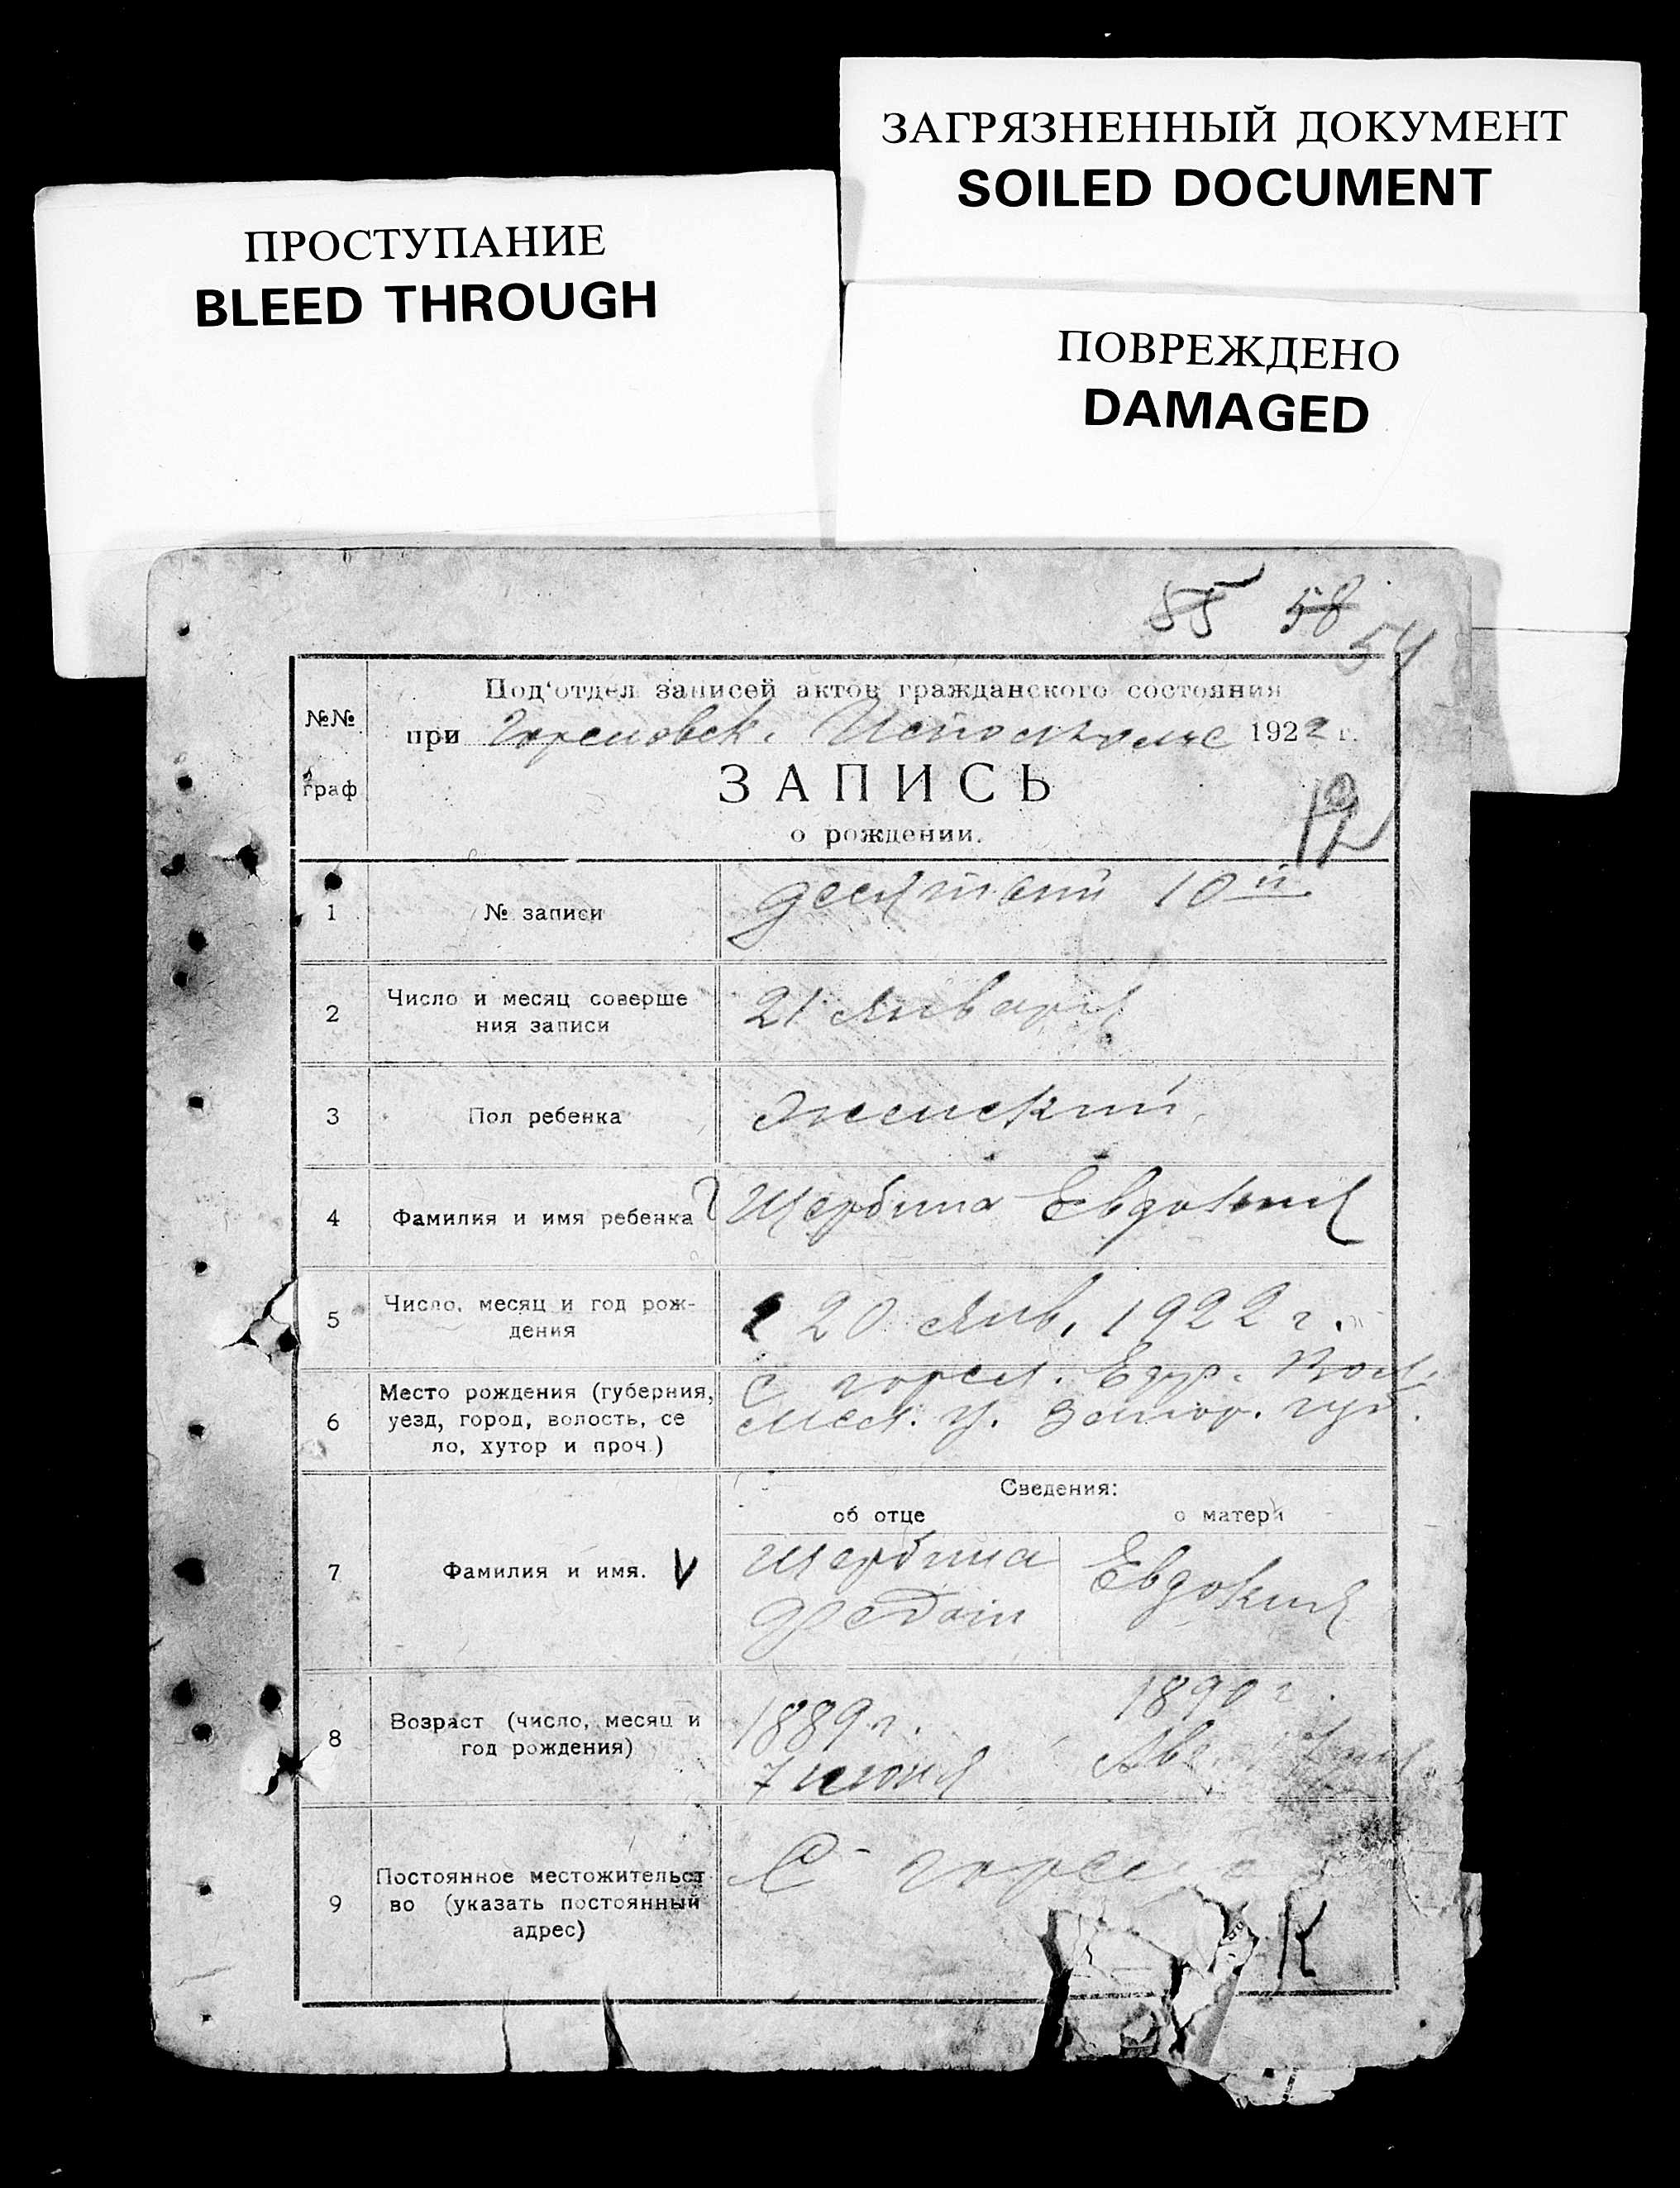 ЗАГРЯЗНЕННЫЙ ДОКУМЕНТ
SOILED DOCUMENT
ПРОСТУПАНИЕ
BLEED THROUGH
ПОВРЕЖДЕНО
DAMAGED
58
54
№№ граф
Под'отдел записей актов гражданского состояния
при Гореловск. Исполкоме 1922 г.
ЗАПИСЬ
12
о рождении.
1 № записи десятый 10й
2 Число и месяц соверше
ния записи
21 Января
3 Пол ребенка Женский
4 Фамилия и имя ребенка Щербина Евдокия
5 Число, месяц и год рож-
дения
20 Янв. 1922 г.
6 Место рождения (губерния,
уезд, город, волость, се
ло, хутор и проч.)
С горел. Вол.
Мел. у. Запор. губ.
Сведения:
об отце о матери
7 Фамилия и имя. V
Щербина
Федот
Евдокия
8 Возраст (число, месяц и
год рождения)
1889 г.
7 июня
1890 г.
9 Постоянное местожительст
во (указать постоянный
адрес)
С